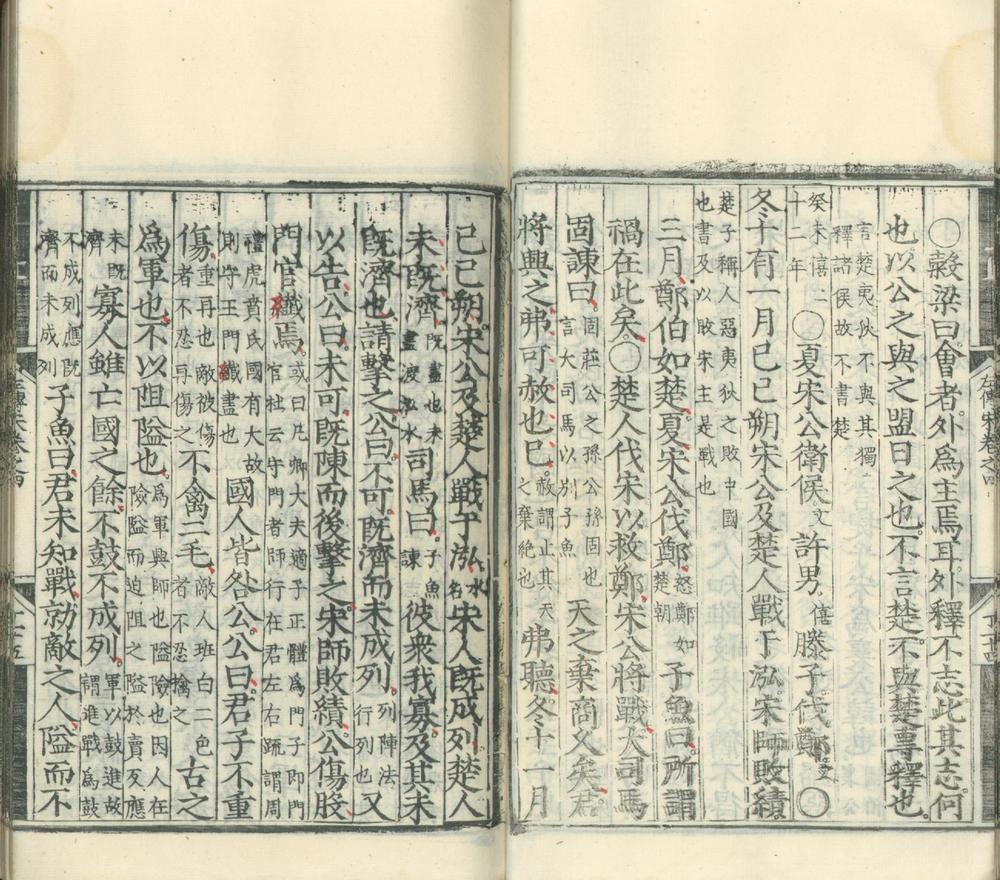 ○穀梁曰會者外爲主焉耳外釋不志此其志何
也以公之與之盟目之也不言楚不與楚專釋也
言楚夷狄不與其獨
釋諸侯故不書楚
癸未僖二
十二年○夏宋公衛侯文許男僖滕子伐鄭文○
冬十有一月己巳朔宋公及楚人戰于泓宋師敗績
楚子稱人惡夷狄之敗中國
也書及以敗宋主是戰也
三月鄭伯如楚夏宋公伐鄭怒鄭如
楚朝子魚曰所謂
禍在此矣○楚人伐宋以救鄭宋公將戰大司馬
固諫曰固莊公之孫公孫固也
言大司馬以別子魚天之棄商久矣君
將興之弗可赦也已赦謂止其天
之棄絶也弗聽冬十一月
己巳朔宋公及楚人戰于泓水
名宋人既成列楚人
未既濟既盡也未
盡渡泓水司馬曰子魚
諫彼衆我寡及其未
既濟也請擊之公曰不可既濟而未成列列陣法
行列也又
以告公曰未可既陳而後擊之宋師敗績公傷股
門官殲焉或曰凡卿大夫適子正體爲門子即門
官杜云守門者師行在君左右疏謂周
禮虎賁氏國有大故
則守王門殲盡也國人皆咎公公曰君子不重
傷重再也敵被傷
者不忍再傷之不禽二毛敵人班白二色
者不忍擒之古之
爲軍也不以阻隘也爲軍興師也隘險也因人在
險隘而迫阻之隘於賣反應
未既
濟寡人雖亡國之餘不鼓不成列軍以鼓進故
謂進戰爲鼓
不成列應既
濟而未成列子魚曰君未知戰勍敵之人隘而不
左傳宋卷之四